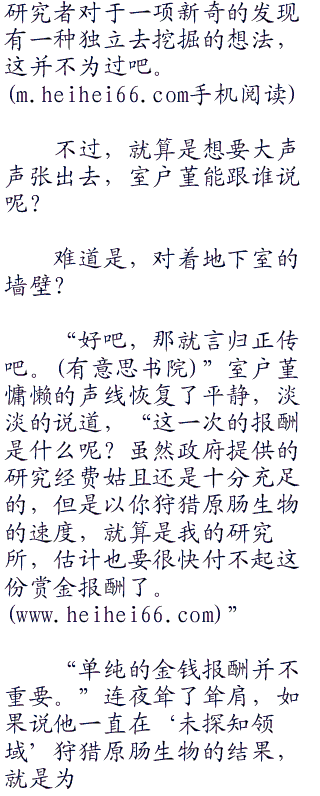 研究者对于一项新奇的发现
有一种独立去挖掘的想法，
这并不为过吧。
(m.heihei66.com手机阅读)
不过，就算是想要大声
声张出去，室户堇能跟谁说
呢？
难道是，对着地下室的
墙壁？
“好吧，那就言归正传
吧。(有意思书院)”室户堇
慵懒的声线恢复了平静，淡
淡的说道，“这一次的报酬
是什么呢？虽然政府提供的
研究经费姑且还是十分充足
的，但是以你狩猎原肠生物
的速度，就算是我的研究
所，估计也要很快付不起这
份赏金报酬了。
(www.heihei66.com)”
“单纯的金钱报酬并不
重要。”连夜耸了耸肩，如
果说他一直在‘未探知领
域’狩猎原肠生物的结果，
就是为